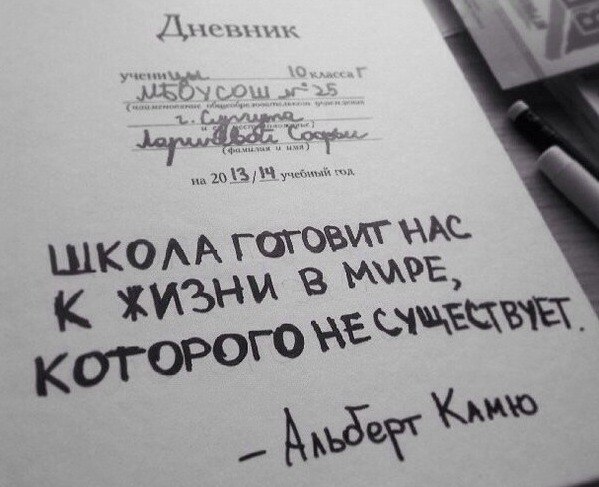 Дневник
ученицы 10 класса Г
МБОУСОШ №25
(наименование общеобразовательного учреждения
г. Сургута
и местоположение)
Лариновой Софьи
(фамилия и имя)
на 2013/14 учебный год
ШКОЛА ГОТОВИТ НАС
К ЖИЗНИ В МИРЕ,
КОТОРОГО НЕ СУЩЕСТВУЕТ.
- Альберт Камю